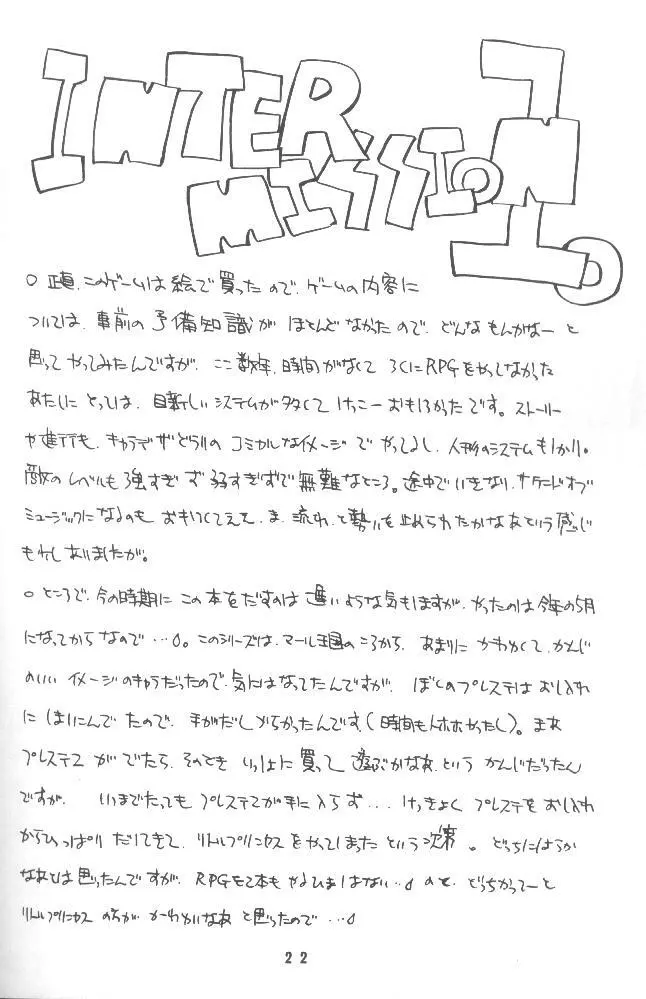 INTER
MISSION
○正直、このゲームは絵で買ったので、ゲームの内容に
ついては、事前の予備知識がほとんどなかったので、どんなもんかなーと
思ってやってみたんですが、ここ数年、時間がなくてろくにRPGをやってなかった
あたしにとっては、目新しいシステムが多くてけっこーおもしろかったです。ストーリー
や進行も、キャラデザどおりのコミカルなイメージでやってよし、人形のシステムも
敵のレベルも強すぎず弱すぎずで無難なところ。途中でいきなり、サウンドオブ
ミュージックになるのも、ま、流れと勢いを止められたかなあという感じ
もしましたが。
○ところで、今の時期にこの本をだすのは遅いような気もしますが、やったのは今年の5月
になってからなので…。このシリーズは、マール王国のころから、あまりにかわいくて、かんじ
のいいイメージのキャラだったので、気にはなってたんですが、ぼくのプレステはおしいれ
にはいってたので、手がだしづらかったんです(時間も)。まあ
プレステ2がでたら、そのときいっしょに買って遊ぶかなあ、というかんじだったん
ですが、いつまでたってもプレステ2が手に入らず…けっきょくプレステをおしいれ
からひっぱりだしてきて、リトルプリンセスをやってしまったという次第。どっちにしようか
なあとは思ったんですが、RPGを2本もやるひまはない…ので、どっちかってーと
リトルプリンセスの方がかーわいいなあと思ったので…
22